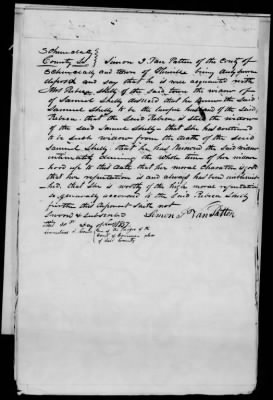 Schenectady }
County Ss } Simon J. Van Patten of the County of
Schenectady and town of being duly sworn
deposeth and say that he is well acquainted with
Mrs Rebeca Shelly of the said town the widow of
of Samuel Shelly deceased that he knew the said
Samuel Shelly to be the lawful husband of the said
Rebeca. that the said Rebeca is still the widow
of the said Samuel Shelly - that she has continued
to be such widow from the death of the said
Samuel Shelly that he has known the said widow
intimately during the whole time of her widow
hood up to this date. that her moral character is good
that her reputation is and always has been
that she is worthy of the high moral reputation
so generally accorded to the said Rebeca Shelly
further this deponent saith not
Sworn & Subscribed Simon J Van Patten
this day of
before one of the Judges of the
Court of Common pleas
of said County